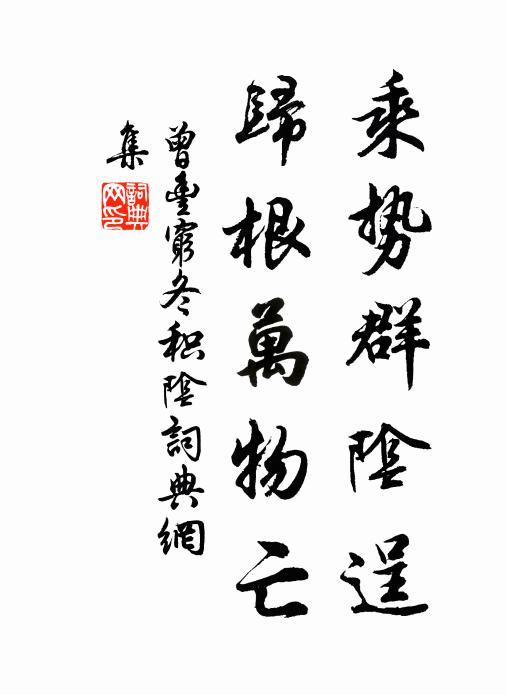 乘勢群陰逞
歸根萬物亡
曾豐窮冬积陰詞典網
集
詞典
网印